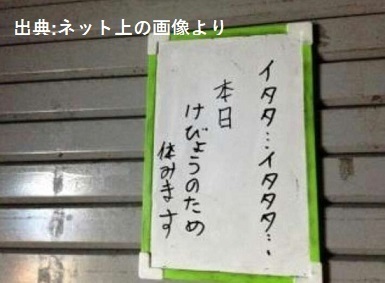 出典:ネット上の画像より
イタタ…イタタタ…、
本日
けびょうのため
休みます